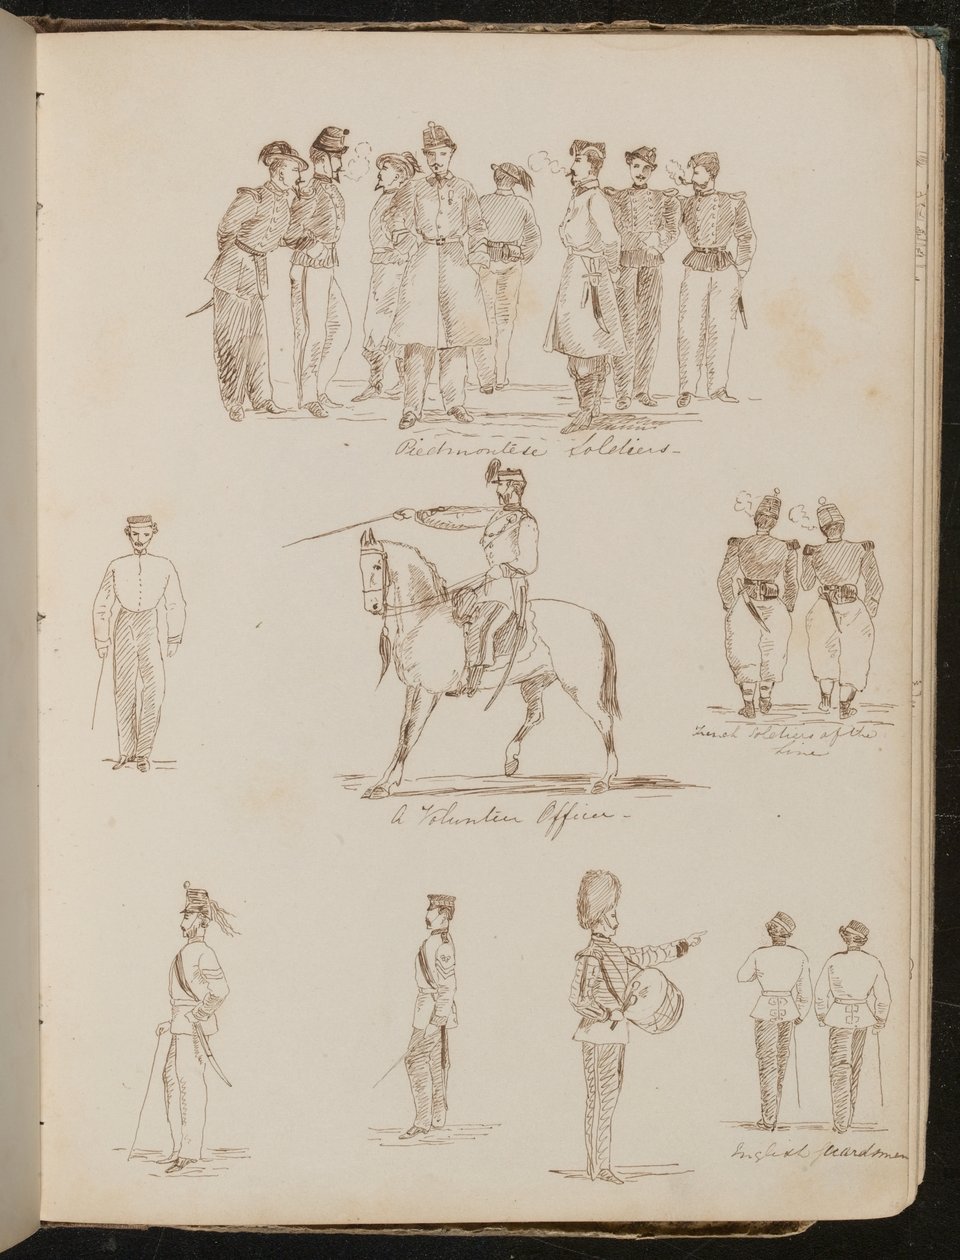 Piedmontese Soldiers-
French Soldiers of the
Line
A Volunteer Officer-
English Guardsmen